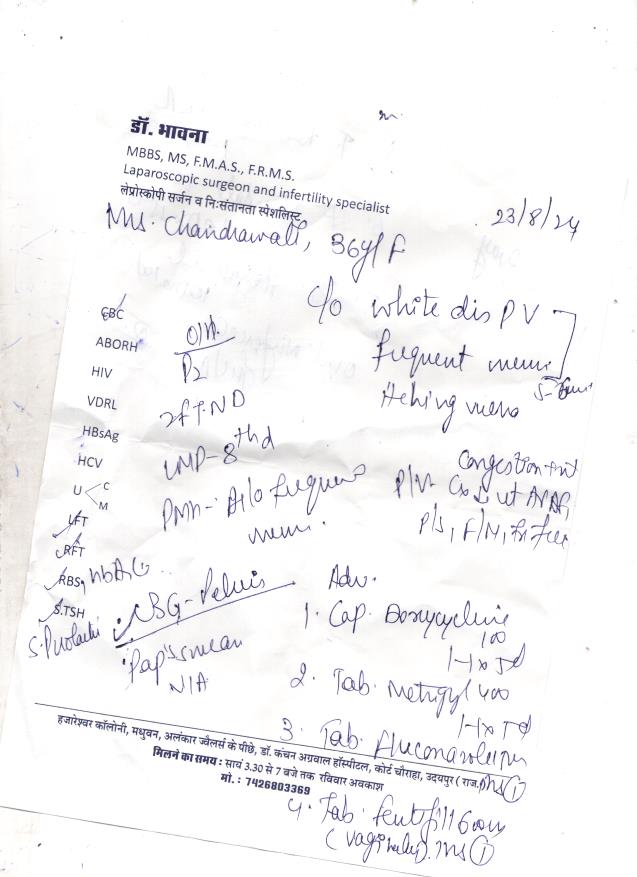 डॉ. भावना
MBBS, MS, F.M.A.S., F.R.M.S.
Laparoscopic surgeon and infertility specialist
लेप्रोस्कोपी सर्जन व निःसंतानता स्पेशलिस्ट
23/8/24
Mrs. Chandrawati, 36y/F
C/o white dis PV
frequent mens.
Itching
CBC
ABORH
HIV
VDRL
HBsAg
HCV
U C
M
LFT
RFT
RBS, HbA1C
S.TSH
S. Prolactin
O/H.
P2
2FTND
LMP - 8th
PMH - A/o frequent
mens.
Congestion
P/V
P/S, F/N, Fx free
USG - Pelvis
Pap's smear
N/A
Adv.
1. Cap. Doxycycline
100
1-1 x 5d
2. Tab. Metrogyl 400
1-1 x 5d
3. Tab. Fluconazole
हजारेश्वर कॉलोनी, मधुवन, अलंकार ज्वैलर्स के पीछे, डॉ. कंचन अग्रवाल हॉस्पीटल, कोर्ट चौराहा, उदयपुर (राज.)
मिलने का समय : सायं 3.30 से 7 बजे तक रविवार अवकाश
मो. : 7426803369
4. Tab.